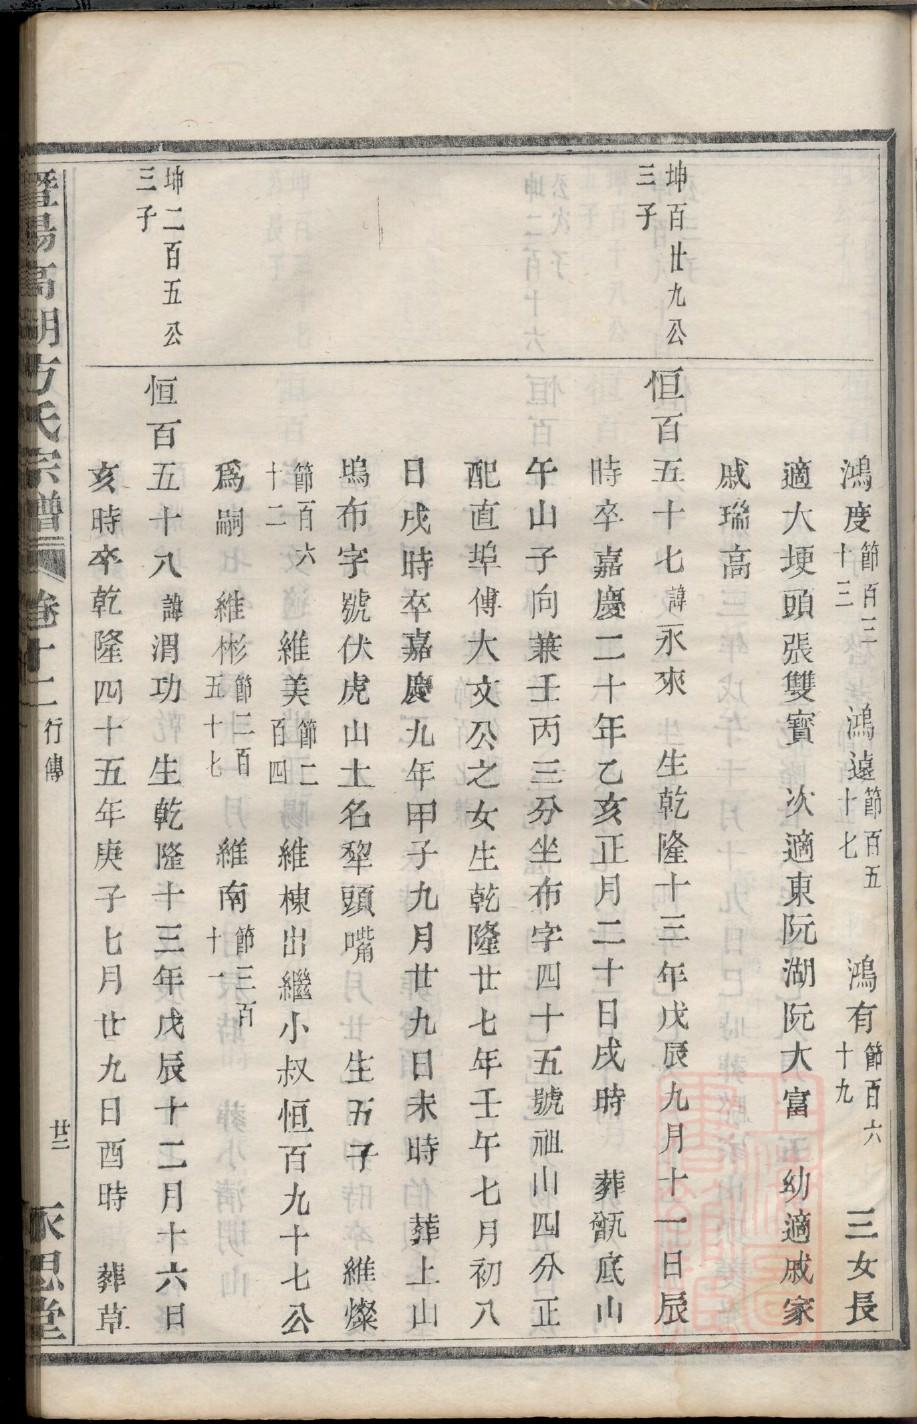 鴻度節百三十三　鴻遠節百五十七　鴻有節百六十九　三女長
適大埂頭張雙寶　次適東阮湖阮大富　幼適戚家
戚瑞高
坤百廿九公三子
恒百五十七諱永來　生乾隆十三年戊辰九月十一日辰
時卒嘉慶二十年乙亥正月二十日戌時　葬甑底山
午山子向兼壬丙三分坐布字四十五號祖山四分正
配直埠傅大文公之女生乾隆廿七年壬午七月初八
日戌時卒嘉慶九年甲子九月廿九日未時　葬上山
塢布字號伏虎山土名犂頭嘴　生五子　維燦
節百六十二　維美節二百四　維棟出繼小叔恒百九十七公
爲嗣　維彬節二百五十七　維南節三百十一
坤二百五公三子
恒百五十八諱渭功　生乾隆十三年戊辰十二月十六日
亥時卒乾隆四十五年庚子七月廿九日酉時　葬草
暨陽高湖方氏宗譜　卷十二　行傳　廿二　永思堂